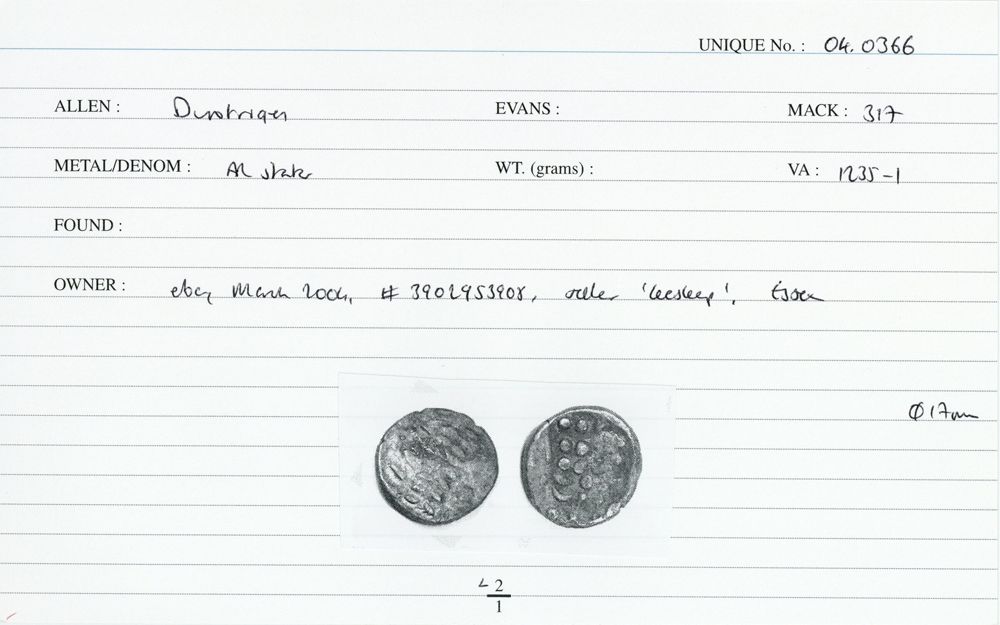 UNIQUE No. : 04.0366
ALLEN : Durotriges EVANS : MACK : 317
METAL/DENOM : AR stater WT. (grams) : VA : 1235-1
FOUND :
OWNER : ebay March 2004, # 3902953908, seller 'leesleep', Essex
Ø 17mm
2
1